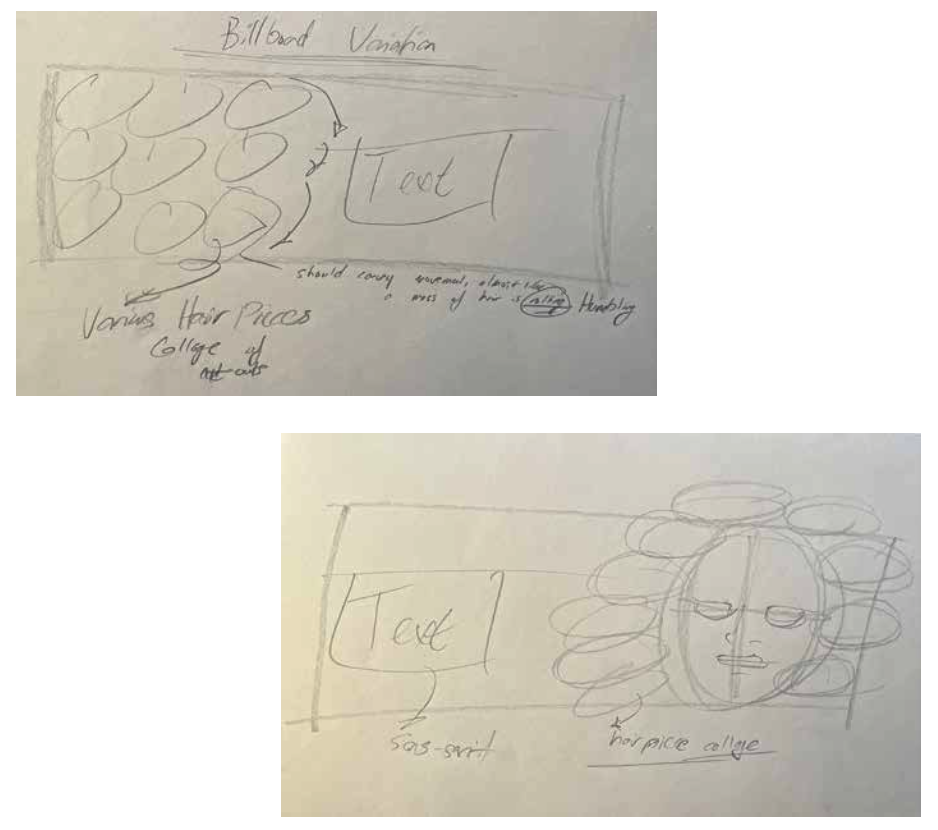 Billboard Variation
Text
should carry movement, almost like
a mass of hair is Humbling
Various Hair Pieces
Collage of
cut-outs
Text
Sans-serif
hair piece collage